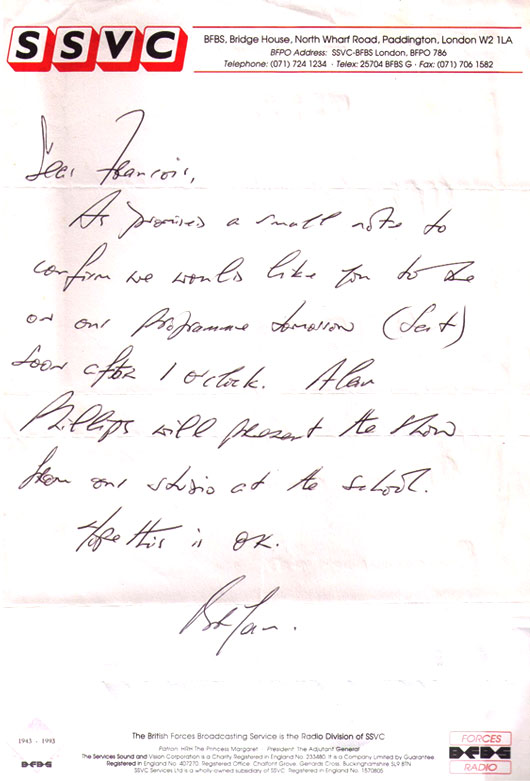 SSVC
BFBS, Bridge House, North Wharf Road, Paddington, London W2 1LA
BFPO Address: SSVC-BFBS London, BFPO 786
Telephone: (071) 724 1234 · Telex: 25704 BFBS G · Fax: (071) 706 1582
Dear Francois,
As promised a small note to
confirm we would like you to be
on our programme tomorrow (Sat)
soon after 1 o'clock. Alan
Phillips will present the show
from our studio at the school.
Hope this is OK.
1943 - 1993
BFBS
The British Forces Broadcasting Service is the Radio Division of SSVC
Patron: HRH The Princess Margaret · President: The Adjutant General
The Services Sound and Vision Corporation is a Charity Registered in England No. 233480. It is a Company Limited by Guarantee.
Registered in England No. 407270. Registered Office: Chalfont Grove, Gerrards Cross, Buckinghamshire SL9 8TN
SSVC Services Ltd is a wholly-owned subsidiary of SSVC. Registered in England No. 1570805
FORCES
BFBS
RADIO